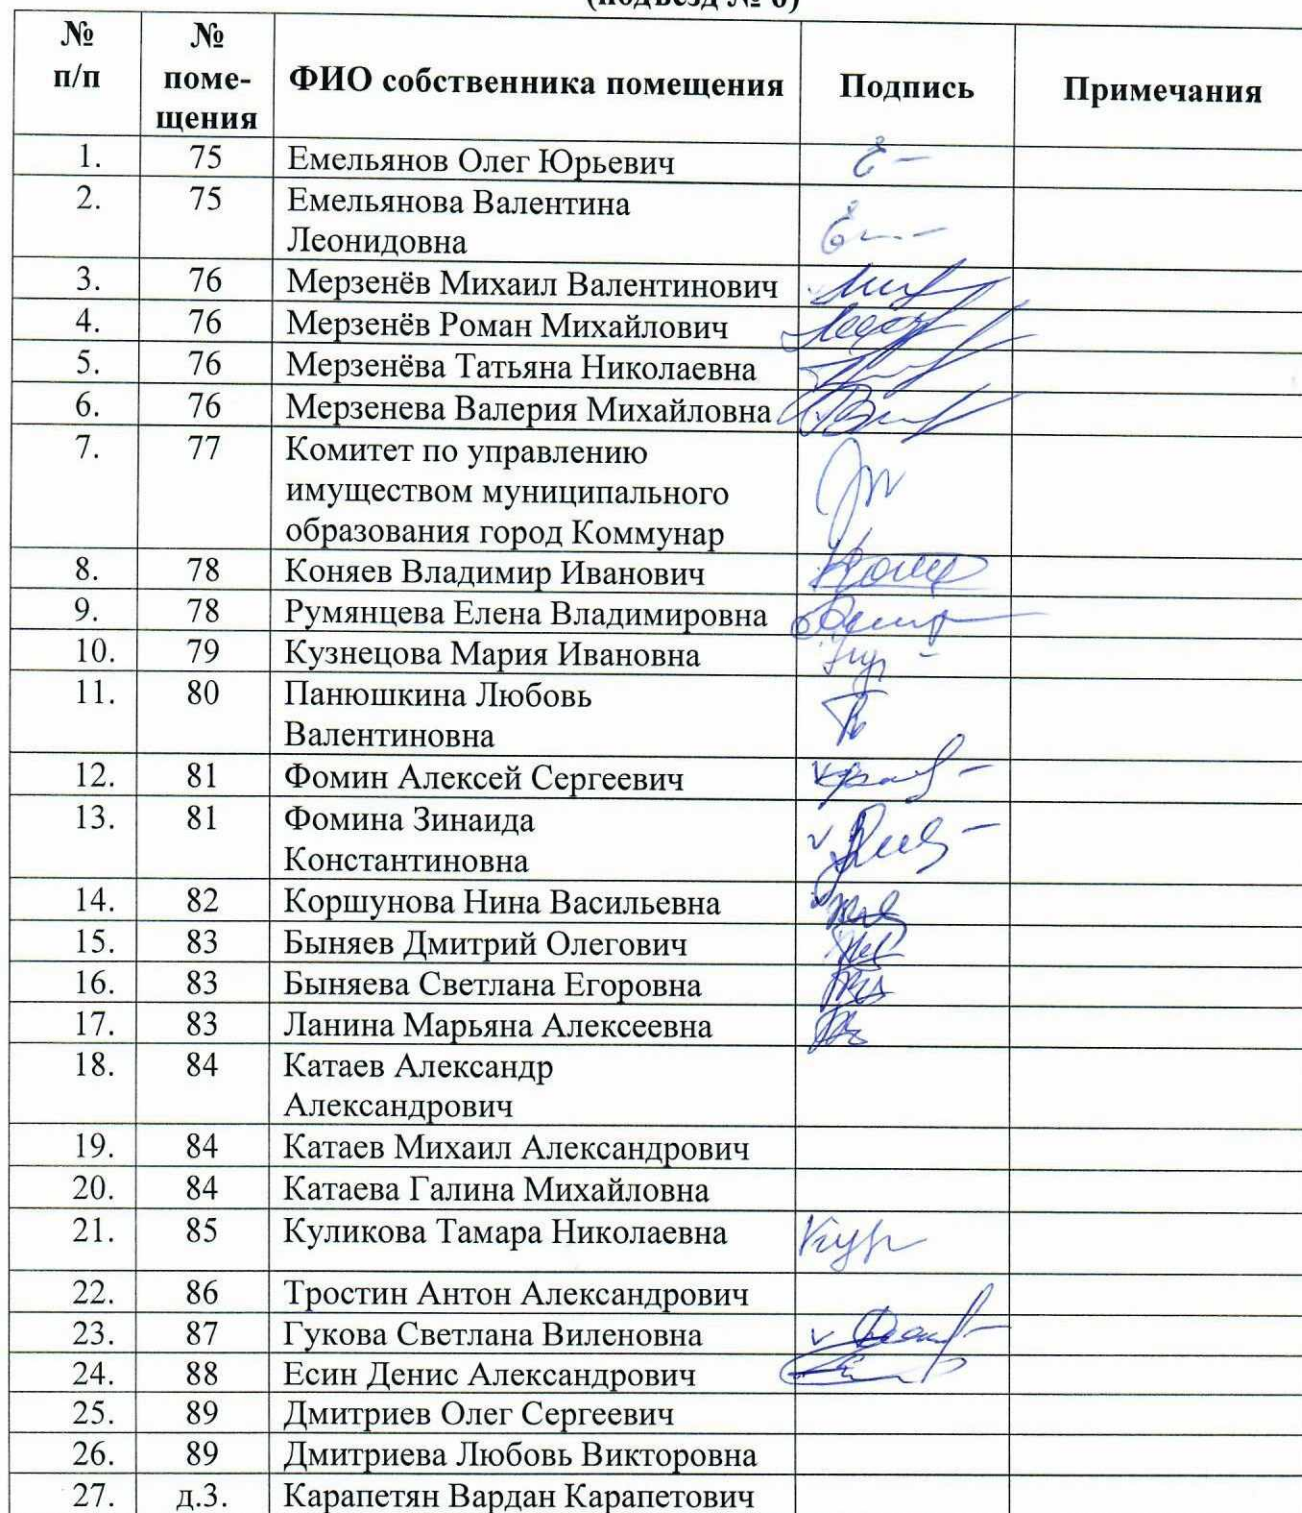 (подъезд № 6)
№ п/п № поме- щения ФИО собственника помещения Подпись Примечания
1. 75 Емельянов Олег Юрьевич
2. 75 Емельянова Валентина
Леонидовна
3. 76 Мерзенёв Михаил Валентинович
4. 76 Мерзенёв Роман Михайлович
5. 76 Мерзенёва Татьяна Николаевна
6. 76 Мерзенева Валерия Михайловна
7. 77 Комитет по управлению
имуществом муниципального
образования город Коммунар
8. 78 Коняев Владимир Иванович
9. 78 Румянцева Елена Владимировна
10. 79 Кузнецова Мария Ивановна
11. 80 Панюшкина Любовь
Валентиновна
12. 81 Фомин Алексей Сергеевич
13. 81 Фомина Зинаида
Константиновна
14. 82 Коршунова Нина Васильевна
15. 83 Быняев Дмитрий Олегович
16. 83 Быняева Светлана Егоровна
17. 83 Ланина Марьяна Алексеевна
18. 84 Катаев Александр
Александрович
19. 84 Катаев Михаил Александрович
20. 84 Катаева Галина Михайловна
21. 85 Куликова Тамара Николаевна
22. 86 Тростин Антон Александрович
23. 87 Гукова Светлана Виленовна
24. 88 Есин Денис Александрович
25. 89 Дмитриев Олег Сергеевич
26. 89 Дмитриева Любовь Викторовна
27. д.3. Карапетян Вардан Карапетович